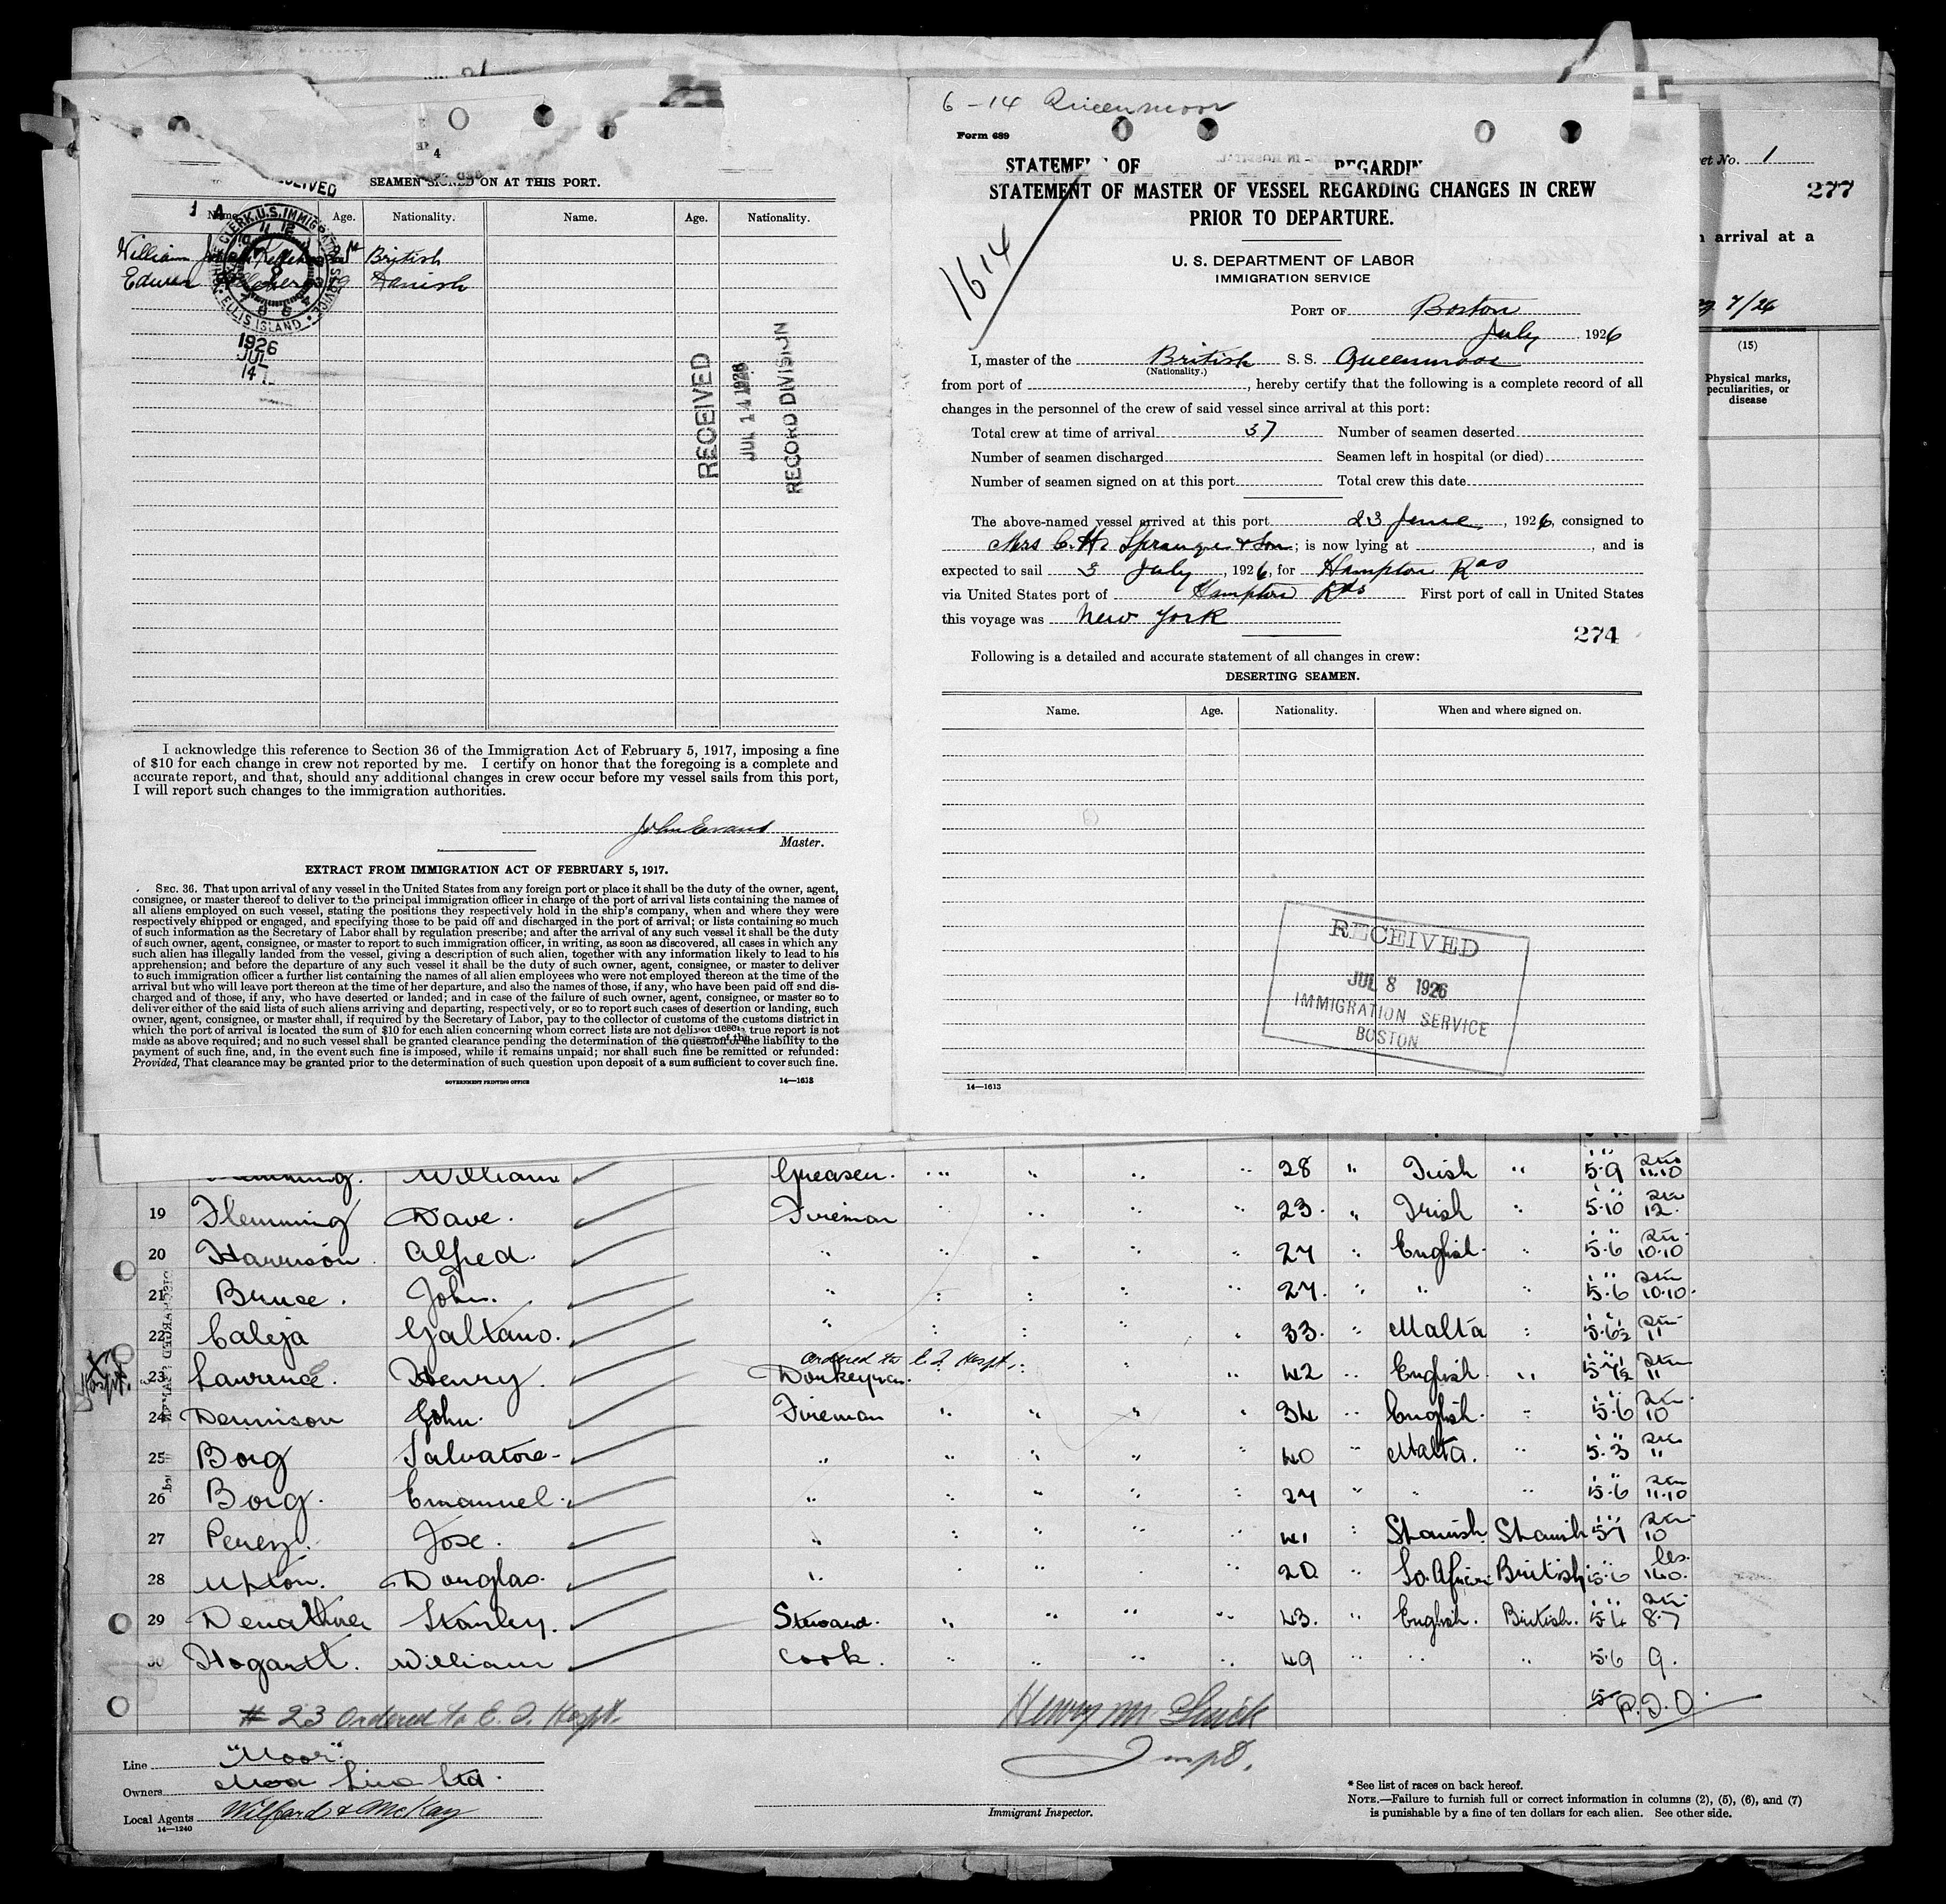 SEAMEN SIGNED ON AT THIS PORT.
Name. Age. Nationality. Name. Age. Nationality.
William British
Edwin Danish
CLERK, U.S. IMMIGRATION SERVICE
ELLIS ISLAND
1926
JUL
14
RECEIVED
JUL 14 1926
RECORD DIVISION
I acknowledge this reference to Section 36 of the Immigration Act of February 5, 1917, imposing a fine
of $10 for each change in crew not reported by me. I certify on honor that the foregoing is a complete and
accurate report, and that, should any additional changes in crew occur before my vessel sails from this port,
I will report such changes to the immigration authorities.
John Evans
Master.
EXTRACT FROM IMMIGRATION ACT OF FEBRUARY 5, 1917.
SEC. 36. That upon arrival of any vessel in the United States from any foreign port or place it shall be the duty of the owner, agent,
consignee, or master thereof to deliver to the principal immigration officer in charge of the port of arrival lists containing the names of
all aliens employed on such vessel, stating the positions they respectively hold in the ship's company, when and where they were
respectively shipped or engaged, and specifying those to be paid off and discharged in the port of arrival; or lists containing so much
of such information as the Secretary of Labor shall by regulation prescribe; and after the arrival of any such vessel it shall be the duty
of such owner, agent, consignee, or master to report to such immigration officer, in writing, as soon as discovered, all cases in which any
such alien has illegally landed from the vessel, giving a description of such alien, together with any information likely to lead to his
apprehension; and before the departure of any such vessel it shall be the duty of such owner, agent, consignee, or master to deliver
to such immigration officer a further list containing the names of all alien employees who were not employed thereon at the time of the
arrival but who will leave port thereon at the time of her departure, and also the names of those, if any, who have been paid off and dis-
charged and of those, if any, who have deserted or landed; and in case of the failure of such owner, agent, consignee, or master so to
deliver either of the said lists of such aliens arriving and departing, respectively, or so to report such cases of desertion or landing, such
owner, agent, consignee, or master, shall, if required by the Secretary of Labor, pay to the collector of customs of the customs district in
which the port of arrival is located the sum of $10 for each alien concerning whom correct lists are not true report is not
made as above required; and no such vessel shall be granted clearance pending the determination of the question of the liability to the
payment of such fine, and, in the event such fine is imposed, while it remains unpaid; nor shall such fine be remitted or refunded:
Provided, That clearance may be granted prior to the determination of such question upon deposit of a sum sufficient to cover such fine.
GOVERNMENT PRINTING OFFICE 14—1613
6-14 Queenmoor
Form 689
STATEMENT OF REGARDIN
STATEMENT OF MASTER OF VESSEL REGARDING CHANGES IN CREW
PRIOR TO DEPARTURE.
1614
U. S. DEPARTMENT OF LABOR
IMMIGRATION SERVICE
PORT OF Boston
July 1926
I, master of the British S. S. Queenmoor
(Nationality.)
from port of , hereby certify that the following is a complete record of all
changes in the personnel of the crew of said vessel since arrival at this port:
Total crew at time of arrival 37 Number of seamen deserted
Number of seamen discharged Seamen left in hospital (or died)
Number of seamen signed on at this port Total crew this date
The above-named vessel arrived at this port 23 June, 1926, consigned to
Mrs C. H. Sprague & Son; is now lying at , and is
expected to sail 3 July, 1926, for Hampton Rds
via United States port of Hampton Rds First port of call in United States
this voyage was New York
274
Following is a detailed and accurate statement of all changes in crew:
DESERTING SEAMEN.
Name. Age. Nationality. When and where signed on.
RECEIVED
JUL 8 1926
IMMIGRATION SERVICE
BOSTON
14—1613
et No. 1
277
arrival at a
7/26
(15)
Physical marks,
peculiarities, or
disease
William Greaser. 28 " Irish " 5.9 11.10
19 Flemming Dave. Fireman 23. " Irish " 5.10 12.
20 Harrison Alfred. " 27 " English. " 5.6 10.10
21 Bruce. John. " 27. " " " 5.6 10.10.
22 Caleja Galtano. " 33. " Malta " 5.6½ 11
Ordered to E. I. Hospt.
Hospt. 23 Lawrence. Henry. Donkeyman. 42 " English. " 5.7½ 11
24 Dennison John. Fireman 34 " English. " 5.6 10
25 Borg Salvatore " 40 " Malta. " 5.3 "
26 Borg. Emanuel. " 27 " " " 5.6 11.10
27 Perez. Jose. " 41 " Spanish Spanish 5.7 10
28 Upton. Douglas. " 20 " So. African British 5.6
29 Stanley. Steward. 43. " English. British. 5.4 8.7
30 Hogartt. William Cook. 49 " " " 5.6 9.
# 23 Ordered to E. I. Hospt. Henry M.
Inspt.
Line "Moor".
Owners Moor Line Ltd.
Local Agents Wilford & McKay
14—1240
Immigrant Inspector.
* See list of races on back hereof.
NOTE.—Failure to furnish full or correct information in columns (2), (5), (6), and (7)
is punishable by a fine of ten dollars for each alien. See other side.